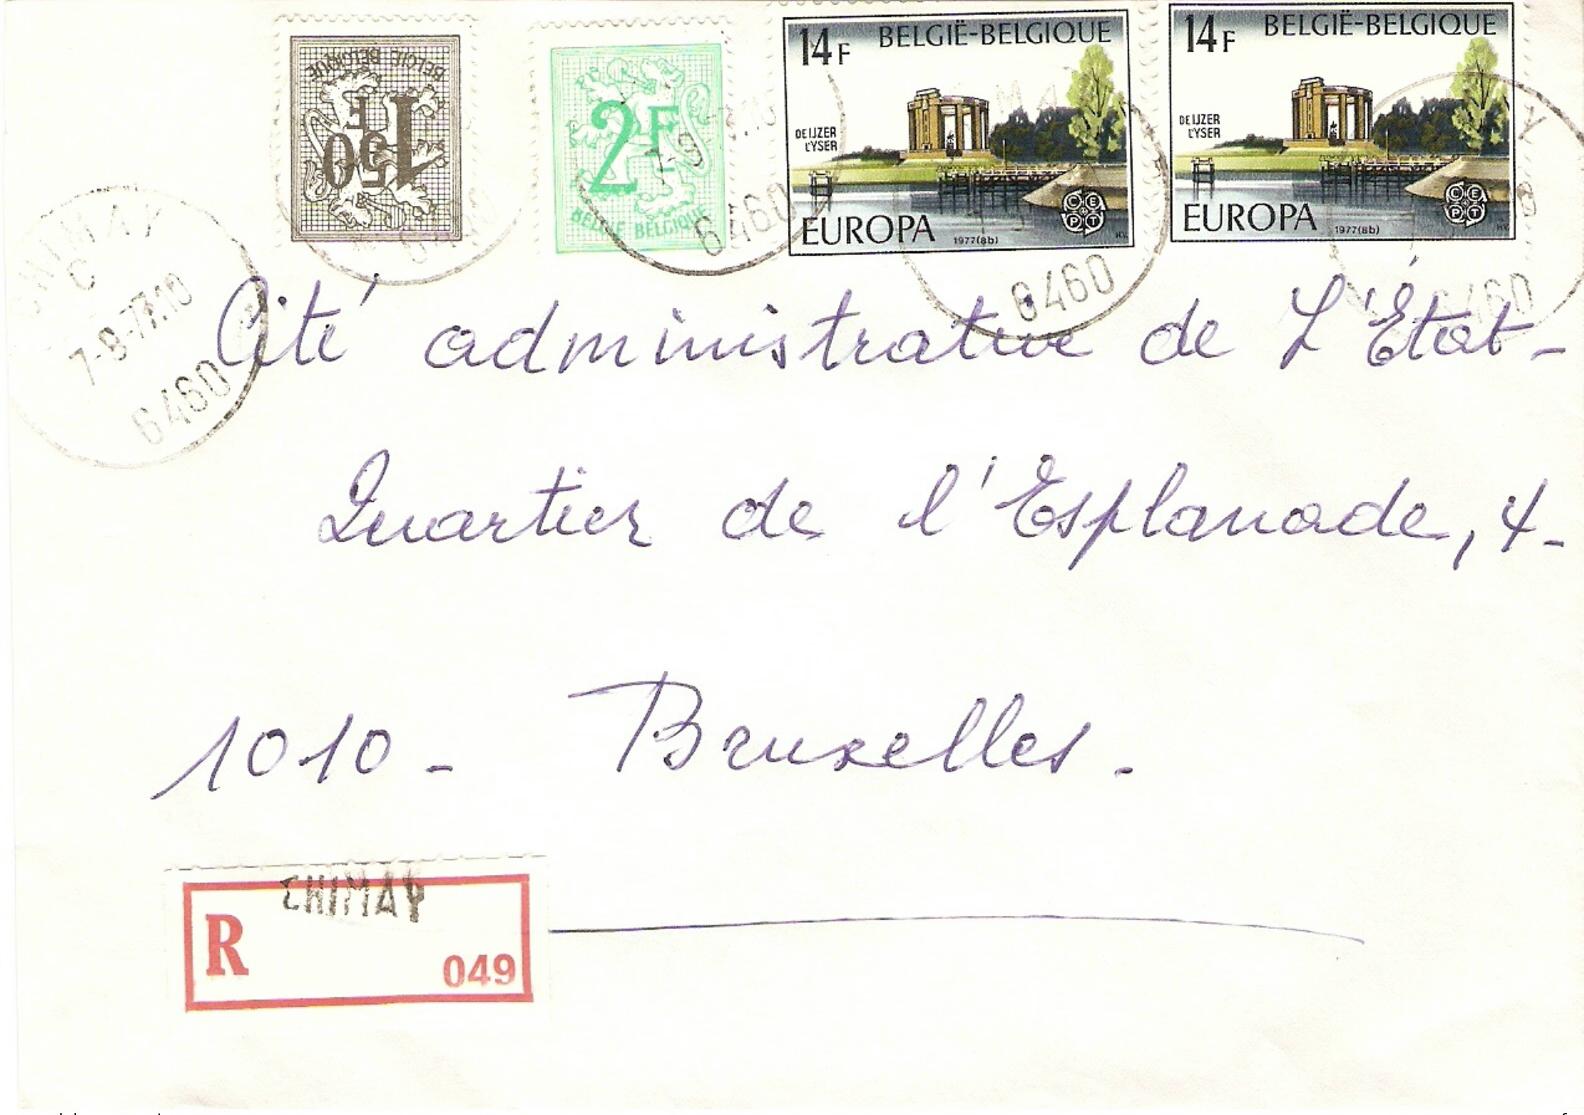 BELGIE BELGIQUE
1F
50
2F
BELGIE BELGIQUE
14F BELGIË-BELGIQUE
DE IJZER
L'YSER
EUROPA 1977(8b)
CEPT
14F BELGIË-BELGIQUE
DE IJZER
L'YSER
EUROPA 1977(8b)
CEPT
CHIMAY
C
7-9-77.10
6460
6460
6460
6460
6460
Cité administrative de L'État-
Quartier de l'Esplanade, 4-
1010- Bruxelles.
CHIMAY
R 049